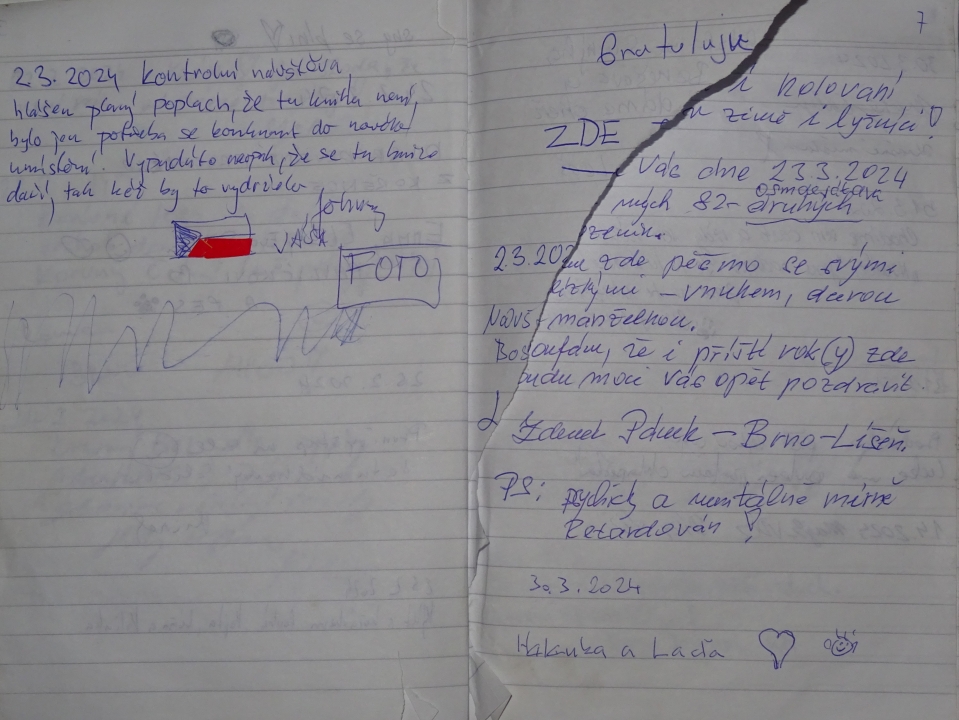 2.3. 2024 kontrolní návštěva,
hlášen planý poplach, že tu kniha není,
bylo jen potřeba se kouknout do nového
umístění. Vypadá to naopak, že se tu knize
daří, tak kéž by to vydrželo
VAŠÍK
FOTO
7
Gratuluji
i kolování
ZDE v zimě i lyžující!
Vás dne 23.3.2024
osmdesátých
mých 82- druhých
zenin.
2.3.202 zde pěšmo se svými
blízkými - vnukem, dcerou
Návš - manželkou.
Bos oufám, že i příští rok(y) zde
budu moci Vás opět pozdravit.
Zdenek - Brno-Líšeň.
PS: psychicky a mentálně mírně
Retardován!
30.3.2024
a Laďa